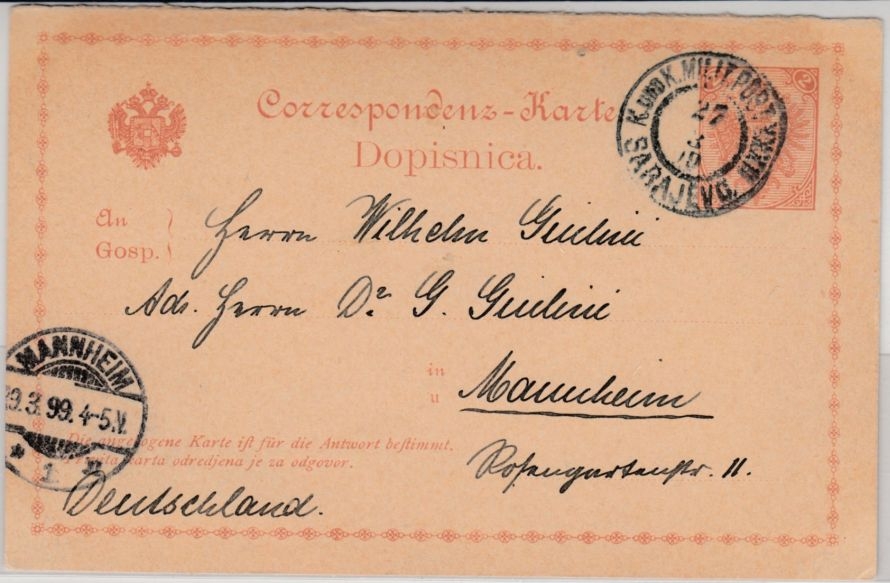 Correspondenz-Karte
Dopisnica.
2
K. UND K. MILIT. POST
27
SARAJEVO.
An
Gosp.
Herrn Wilhelm Giulini
Ads. Herrn Dr. G. Giulini
in
u
Mannheim
MANNHEIM
29.3.99.4-5.V.
* 1 *
Die angebogene Karte ist für die Antwort bestimmt.
karta odredjena je za odgovor.
Rosengartenstr. 11.
Deutschland.